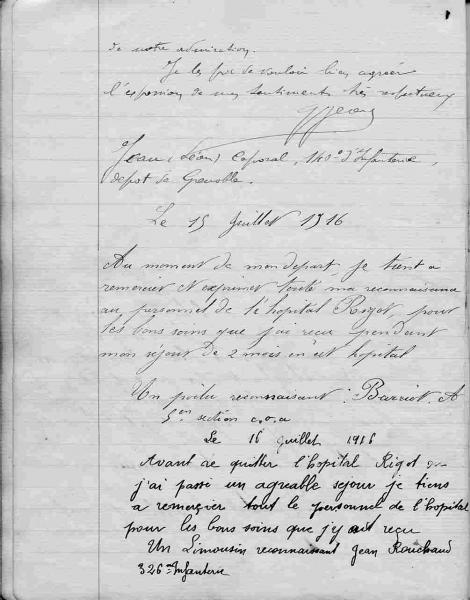 de notre admiration.
Je les prie de vouloir bien agréer
l'expression de mes sentiments très respectueux
Jean
Jean (Léon) Caporal, 140e d'Infanterie,
dépôt de Grenoble.
Le 15 Juillet 1916
Au moment de mon depart je tient a
remercier et exprimer toute ma reconnaissance
au personnel de l'hopital Rigot, pour
les bons soins que j'ai reçu pendant
mon séjour de 2 mois en cet hopital
Un poilu reconnaisant : Barriot. A
5en section c.o.a
Le 16 Juillet 1916
Avant de quitter l'hopital Rigot ou
j'ai passé un agreable sejour je tiens
a remercier tout le personnel de l'hopital
pour les bons soins que j'y ait reçu
Un Limousin reconnaissant Jean Rouchaud
326e Infanterie